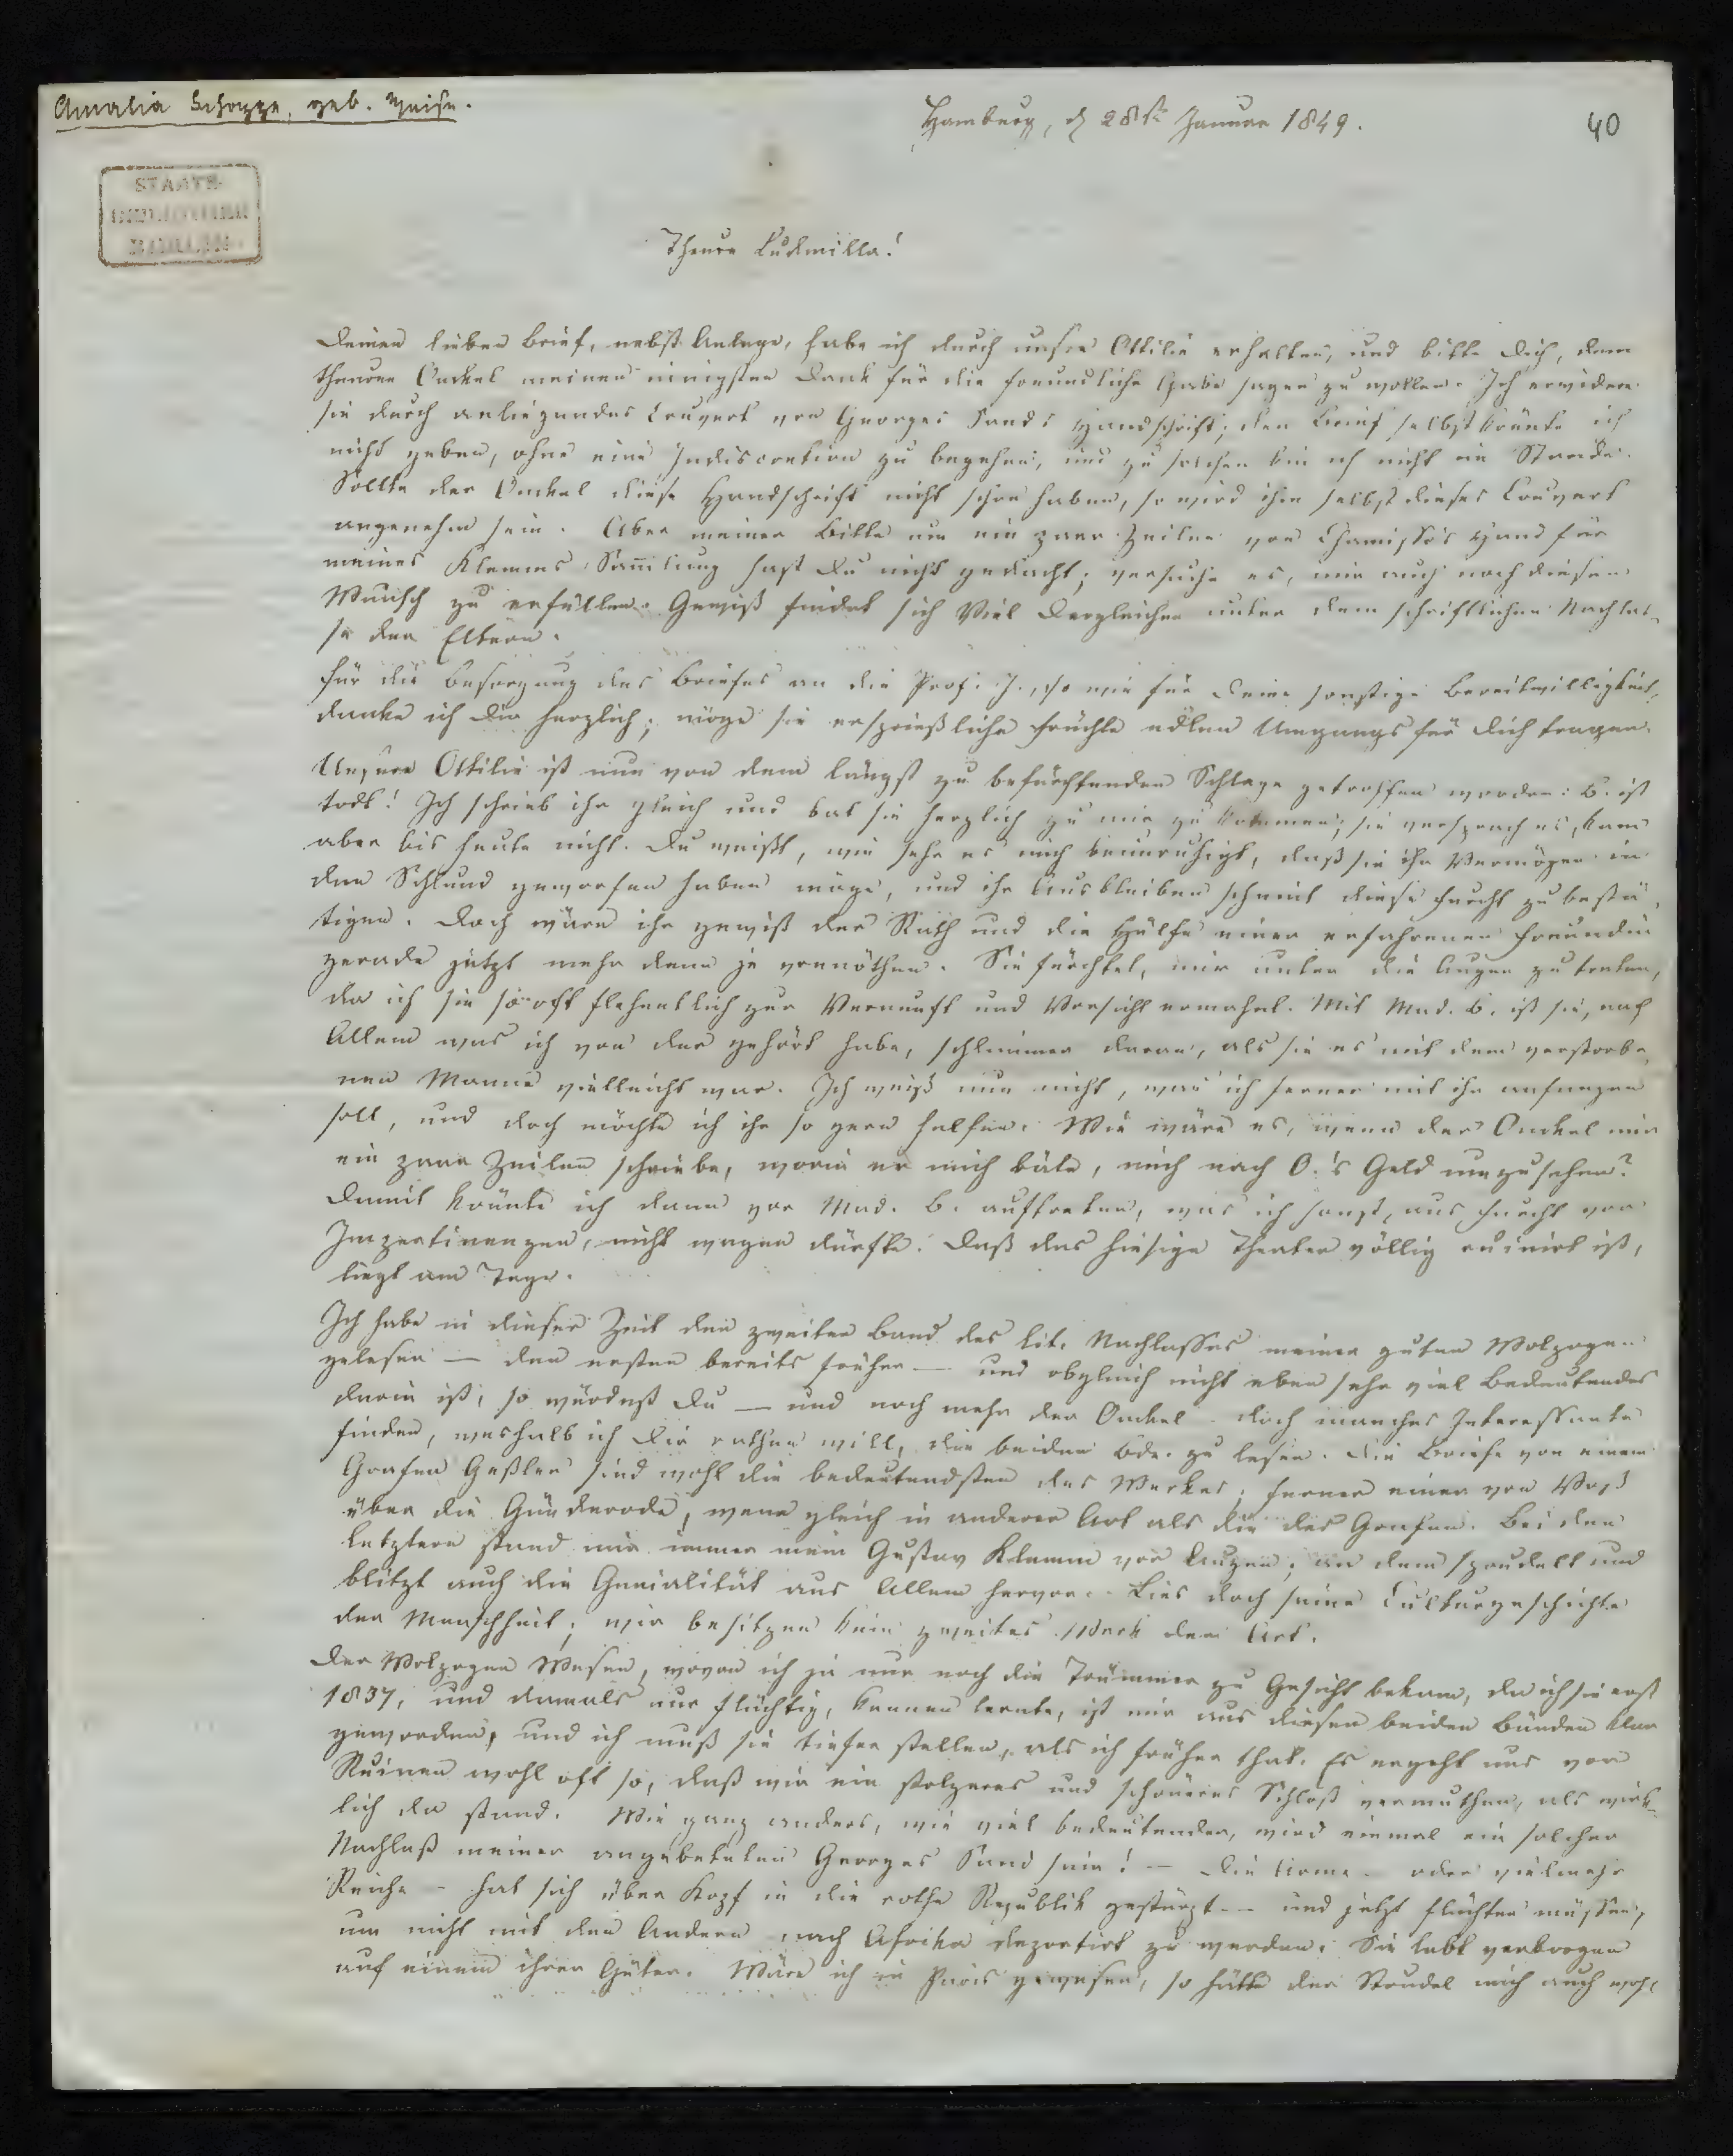 Amalia Schoppe, geb. Weise.
Hamburg, d 28st Januar 1849.
40
STAATS-
BIBLIOTHEK
BERLIN
Theure Ludmilla!
Deinen lieben Brief, nebst Anlage, habe ich durch unsre Ottilie erhalten, und bitte Dich, dem
theuren Onckel meinen innigsten Dank für die freundliche Gabe sagen zu wollen. Ich erwidere
sie durch anliegendes Couvert von Georges Sands Handschrift; den Brief selbst könnte ich
nicht geben, ohne eine Indiscretion zu begehen, und zu solchen bin ich nicht im Stande.
Sollte der Onckel diese Handschrift nicht schon haben, so wird ihm selbst dieses Couvert
angenehm sein. Aber meiner Bitte um ein paar Zeilen von Chamisso's Hand für
meines Klemms Sam̄lung hast Du nicht gedacht; versuche es, mir auch noch diesen
Wunsch zu erfüllen. Gewiß findet sich Viel Dergleichen unter dem schriftlichen Nachlas-
se der Eltern.
Für die Besorgung des Briefes an die Prof. J., so wie für Deine sonstige Bereitwilligkeit,
danke ich Dir herzlich; möge sie ersprießliche Früchte edlen Umgangs für Dich tragen.
Unsere Ottilie ist nun von dem längst zu befürchtenden Schlage getroffen worden: B. ist
todt! Ich schrieb ihr gleich und bat sie herzlich zu mir zu kommen; sie versprach es, kam
aber bis heute nicht. Du weißt, wie sehr es mich beunruhigt, daß sie ihr Vermögen in
den Schlund geworfen haben möge, und ihr Ausbleiben scheint diese Furcht zu bestä-
tigen. Doch wäre ihr gewiß der Rath und die Hülfe einer erfahrenen Freundin
gerade jetzt mehr denn je vonnöthen. Sie fürchtet, mir unter die Augen zu treten,
da ich sie so oft flehentlich zur Vernunft und Vorsicht ermahnt. Mit Mad. B. ist sie, nach
Allem was ich von der gehört habe, schlimmer daran, als sie es mit dem verstorbe-
nen Manne vielleicht war. Ich weiß nun nicht, was ich ferner mit ihr anfangen
soll, und doch möchte ich ihr so gern helfen. Wie wäre es, wenn der Onckel mir
ein paar Zeilen schriebe, worin er mich bäte, mich nach O.'s Geld umzusehen?
Damit könnte ich dann vor Mad. B. auftreten, was ich sonst, aus Furcht vor
Impertinenzen, nicht wagen dürfte. Daß das hiesige Theater völlig ruinirt ist,
liegt am Tage.
Ich habe in dieser Zeit den zweiten Band des lit. Nachlasses meiner guten Wolzogen
gelesen — den ersten bereits früher — und obgleich nicht eben sehr viel Bedeutendes
darin ist, so würdest Du — und noch mehr der Onckel - doch manches Interessante
finden, weshalb ich Dir rathen will, die beiden Bde. zu lesen. Die Briefe von einem
Grafen Geßler sind wohl die bedeutendsten des Werkes; ferner einer von Voß
über die Günderode, wenn gleich in anderer Art als die des Grafen. Bei den
letztern stand mir immer mein Gustav Klemm vor Augen; an dem sprudelt und
blitzt auch die Genialität aus Allem hervor. Lies doch seine Culturgeschichte
der Menschheit; wir besitzen kein zweites Werk der Art.
Der Wolzogen Wesen, wovon ich ja nur noch die Trümmer zu Gesicht bekam, da ich sie erst
1837, und damals nur flüchtig, kennen lernte, ist mir aus diesen beiden Bänden klar
geworden, und ich muß sie tiefer stellen, als ich früher that. Es ergeht uns vor
Ruinen wohl oft so, daß wir ein stolzeres und schöneres Schloß vermuthen, als wirk-
lich da stand. Wie ganz anders, wie viel bedeutender, wird einmal ein solcher
Nachlaß meiner angebeteten Georges Sand sein! — Die Arme - oder vielmehr
Reiche - hat sich über Kopf in die rothe Republik gestürzt -- und jetzt flüchten müssen,
um nicht mit den Andern nach Afrika deportirt zu werden. Sie lebt verborgen
auf einem ihrer Güter. Wäre ich in Paris gewesen, so hätte der Strudel mich auch wohl